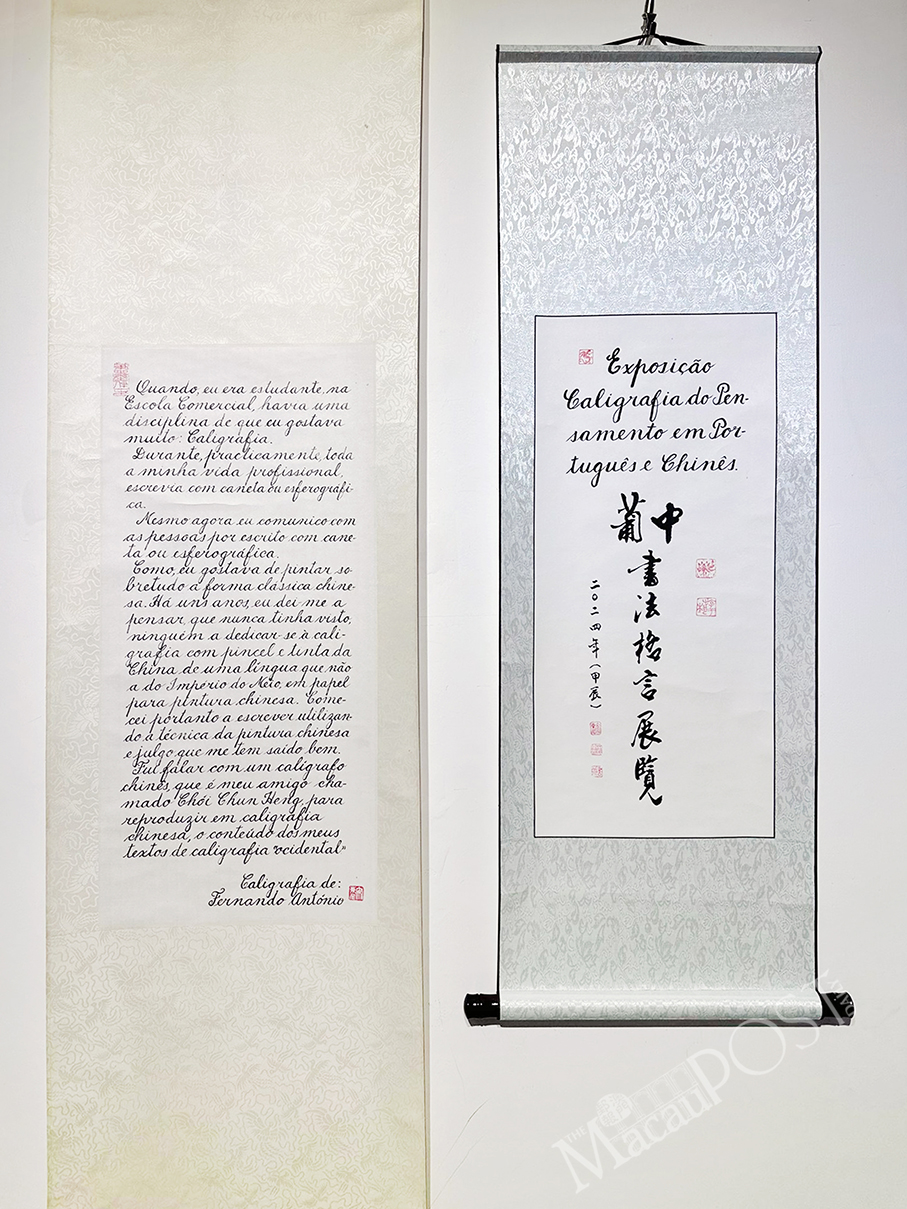 Quando, eu era estudante, na
Escola Comercial, havia uma
disciplina de que eu gostava
muito: Caligrafia.
Durante, practicamente, toda
a minha vida profissional,
escrevia com caneta ou esferográfi-
ca.
Mesmo agora eu comunico com
as pessoas por escrito com cane-
ta ou esferográfica.
Como, eu gostava de pintar so-
bretudo a forma clássica chine-
sa. Há uns anos, eu dei me a
pensar, que nunca tinha visto,
ninguém a dedicar-se à cali-
grafia com pincel e tinta da
China de uma língua que não
a do Império do Meio, em papel
para pintura chinesa. Come-
cei portanto a escrever utilizan-
do a técnica da pintura chinesa
e julgo que me tem saido bem.
Fui falar com um calígrafo
chinês, que é meu amigo cha-
mado Chói Chun Heng, para
reproduzir em caligrafia
chinesa, o conteúdo dos meus
textos de caligrafia "ocidental"
Caligrafia de:
Fernando António
Exposição
Caligrafia do Pen-
samento em Por-
tuguês e Chinês.
中葡
書法格言展覽
二〇二四年(甲辰)
THE Macau POST